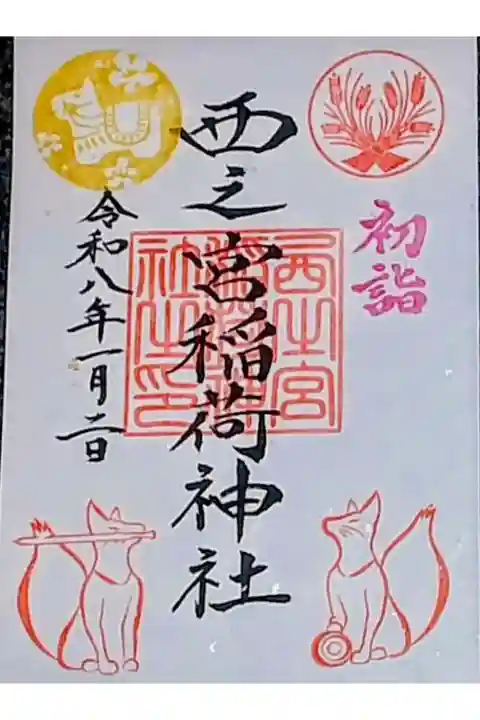 初詣
西之宮稲荷神社
西之宮
稲荷神
社之印
令和八年一月二日